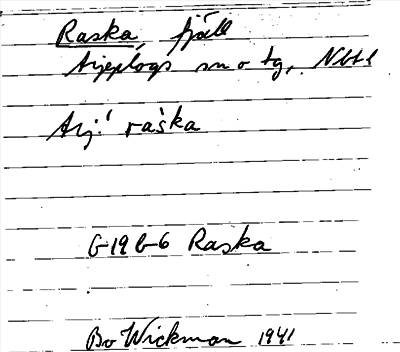 Raska, fjäll
Arjeplogs sn o tg, Nbtl
Arj: raška
G-19 b-6 Raska
Bo Wickman 1941